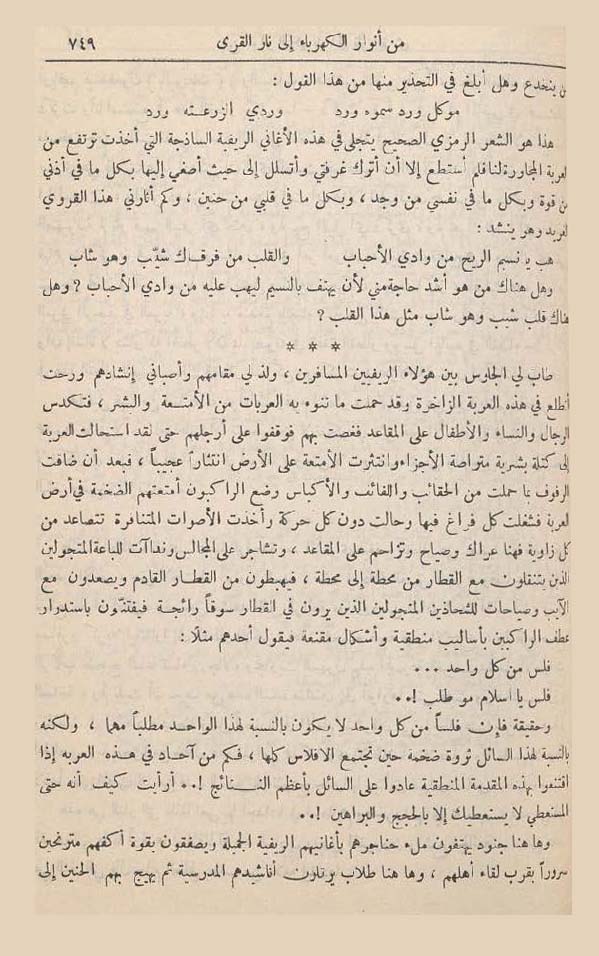 من أنوار الكهرباء إلى نار القرى ٧٤٩
ينخدع وهل أبلغ في التحذير منها من هذا القول :
موكل ورد سموه ورد وردي الزرعته ورد
هذا هو الشعر الرمزي الصحيح يتجلى في هذه الأغاني الريفية الساذجة التي أخذت ترتفع من
لعربة المجاورة لنا فلم أستطع إلا أن أترك غرفتي وأتسلل إلى حيث أصغي إليها بكل ما في أذني
من قوة وبكل ما في نفسي من وجد ، وبكل ما في قلبي من حنين ، وكم أثارني هذا القروي
وهو ينشد :
هب يا نسيم الريح من وادي الأحباب والقلب من فرقاك شيّب وهو شاب
وهل هناك من هو أشد حاجة مني لأن يهتف بالنسيم ليهب عليه من وادي الأحباب ? وهل
هناك قلب شيب وهو شاب مثل هذا القلب ?
* * *
طاب لي الجلوس بين هؤلاء الريفيين المسافرين ، ولذ لي مقامهم وأصباني إنشادهم ورحت
أتطلع في هذه العربة الزاخرة وقد حملت ما تنوء به العربات من الأمتعة والبشر ، فتكدس
الرجال والنساء والأطفال على المقاعد فغصت بهم فوقفوا على أرجلهم حتى لقد استحالت العربة
إلى كتلة بشرية متراصة الأجزاء وانتثرت الأمتعة على الأرض انتثاراً عجيباً ، فبعد أن ضاقت
الرفوف بما حملت من الحقائب واللفائف والأكياس وضع الراكبون أمتعتهم الضخمة في أرض
لعربة فشغلت كل فراغ فيها وحالت دون كل حركة وأخذت الأصوات المتنافرة تتصاعد من
كل زاوية فهنا عراك وصياح وتزاحم على المقاعد ، وتشاجر على المجالس ونداآت للباعة المتجولين
الذين يتنقلون مع القطار من محطة إلى محطة ، فيهبطون من القطار القادم ويصعدون مع
الآيب وصياحات للشحاذين المتجولين الذين يرون في القطار سوقاً رائجة فيفتنّون باستدرار
عطف الراكبين بأساليب منطقية وأشكال مقنعة فيقول أحدهم مثلا :
فلس من كل واحد ...
فلس يا اسلام مو طلب !..
وحقيقة فإن فلساً من كل واحد لا يكون بالنسبة لهذا الواحد مطلباً مهما ، ولكنه
بالنسبة لهذا السائل ثروة ضخمة حين تجتمع الافلاس كلها ، فكم من آحاد في هذه العربه إذا
اقتنعوا بهذه المقدمة المنطقية عادوا على السائل بأعظم النتائج !.. أرأيت كيف أنه حتى
المستعطي لا يستعطيك إلا بالحجج والبراهين !..
وها هنا جنود يهتفون ملء حناجرهم بأغانيهم الريفية الجميلة ويصفقون بقوة أكفهم مترنحين
سروراً بقرب لقاء أهلهم ، وها هنا طلاب يرتلون أناشيدهم المدرسية ثم يهيج بهم الحنين إلى